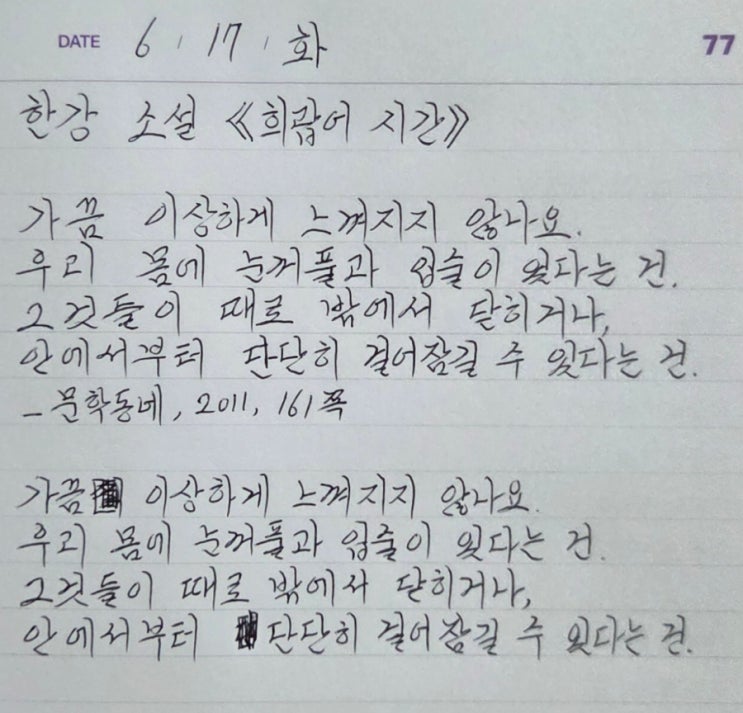 DATE 6 / 17 / 화 77
한강 소설 《희랍어 시간》
가끔 이상하게 느껴지지 않나요.
우리 몸에 눈꺼풀과 입술이 있다는 건.
그것들이 때로 밖에서 닫히거나,
안에서부터 단단히 걸어잠길 수 있다는 건.
– 문학동네, 2011, 161쪽
가끔 이상하게 느껴지지 않나요.
우리 몸에 눈꺼풀과 입술이 있다는 건.
그것들이 때로 밖에서 닫히거나,
안에서부터 단단히 걸어잠길 수 있다는 건.